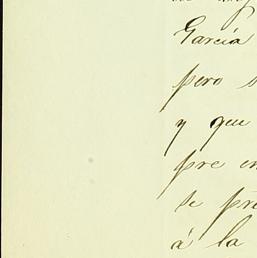 García
pero
y que
pre en
se pre
á la